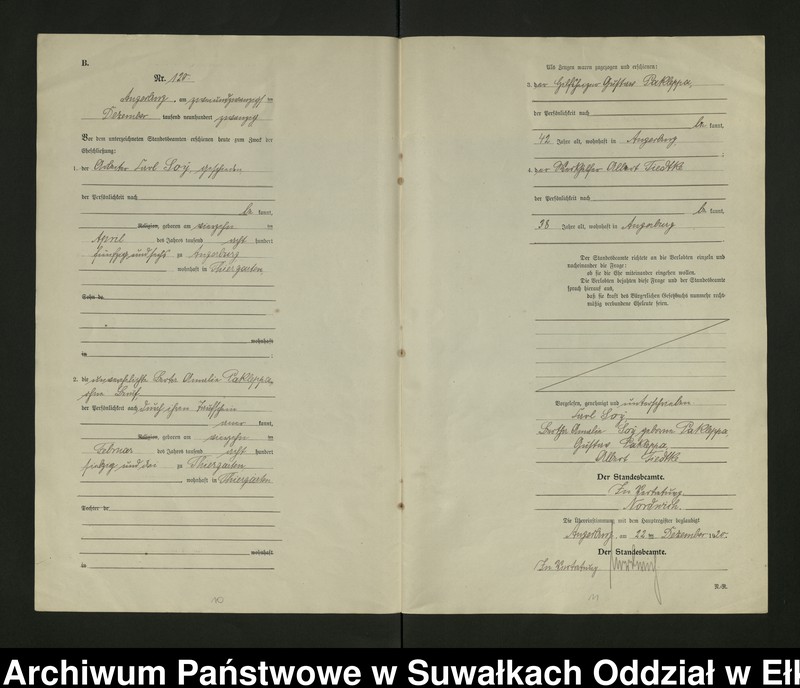 B.
Nr. 120.
Angerburg, am zweiundzwanzigsten
Dezember tausend neunhundert zwanzig
Vor dem unterzeichneten Standesbeamten erschienen heute zum Zweck der
Eheschließung:
1. der Arbeiter Karl Soy, geschieden
der Persönlichkeit nach
be kannt,
Religion, geboren am vierzehnten
April des Jahres tausend acht hundert
fünfzig und sechs zu Angerburg
wohnhaft in Thiergarten
Sohn de
wohnhaft
in
2. die unverehelichte Berta Amalie Pakleppa,
ohne Beruf,
der Persönlichkeit nach durch ihren
kannt,
Religion, geboren am vierzehn
Februar des Jahres tausend acht hundert
siebzig und drei zu Thiergarten
wohnhaft in Thiergarten
Tochter de
wohnhaft
in
Als Zeugen waren zugezogen und erschienen:
3. der Gustav Pakleppa,
der Persönlichkeit nach
be kannt,
42 Jahre alt, wohnhaft in Angerburg
4. der Albert Tiedtke
der Persönlichkeit nach
be kannt,
38 Jahre alt, wohnhaft in Angerburg
Der Standesbeamte richtete an die Verlobten einzeln und
nacheinander die Frage:
ob sie die Ehe miteinander eingehen wollen.
Die Verlobten bejahten diese Frage und der Standesbeamte
sprach hierauf aus,
daß sie kraft des Bürgerlichen Gesetzbuchs nunmehr recht-
mäßig verbundene Eheleute seien.
Vorgelesen, genehmigt und unterschrieben
Karl Soy
Bertha Amalie Soy geborene Pakleppa
Gustav Pakleppa
Albert Tiedtke
Der Standesbeamte.
In Vertretung
Nordwich.
Die Übereinstimmung mit dem Hauptregister beglaubigt
Angerburg, am 22ten Dezember 1920.
Der Standesbeamte.
In Vertretung
R.-R.
Archiwum Państwowe w Suwałkach Oddział w Ełk